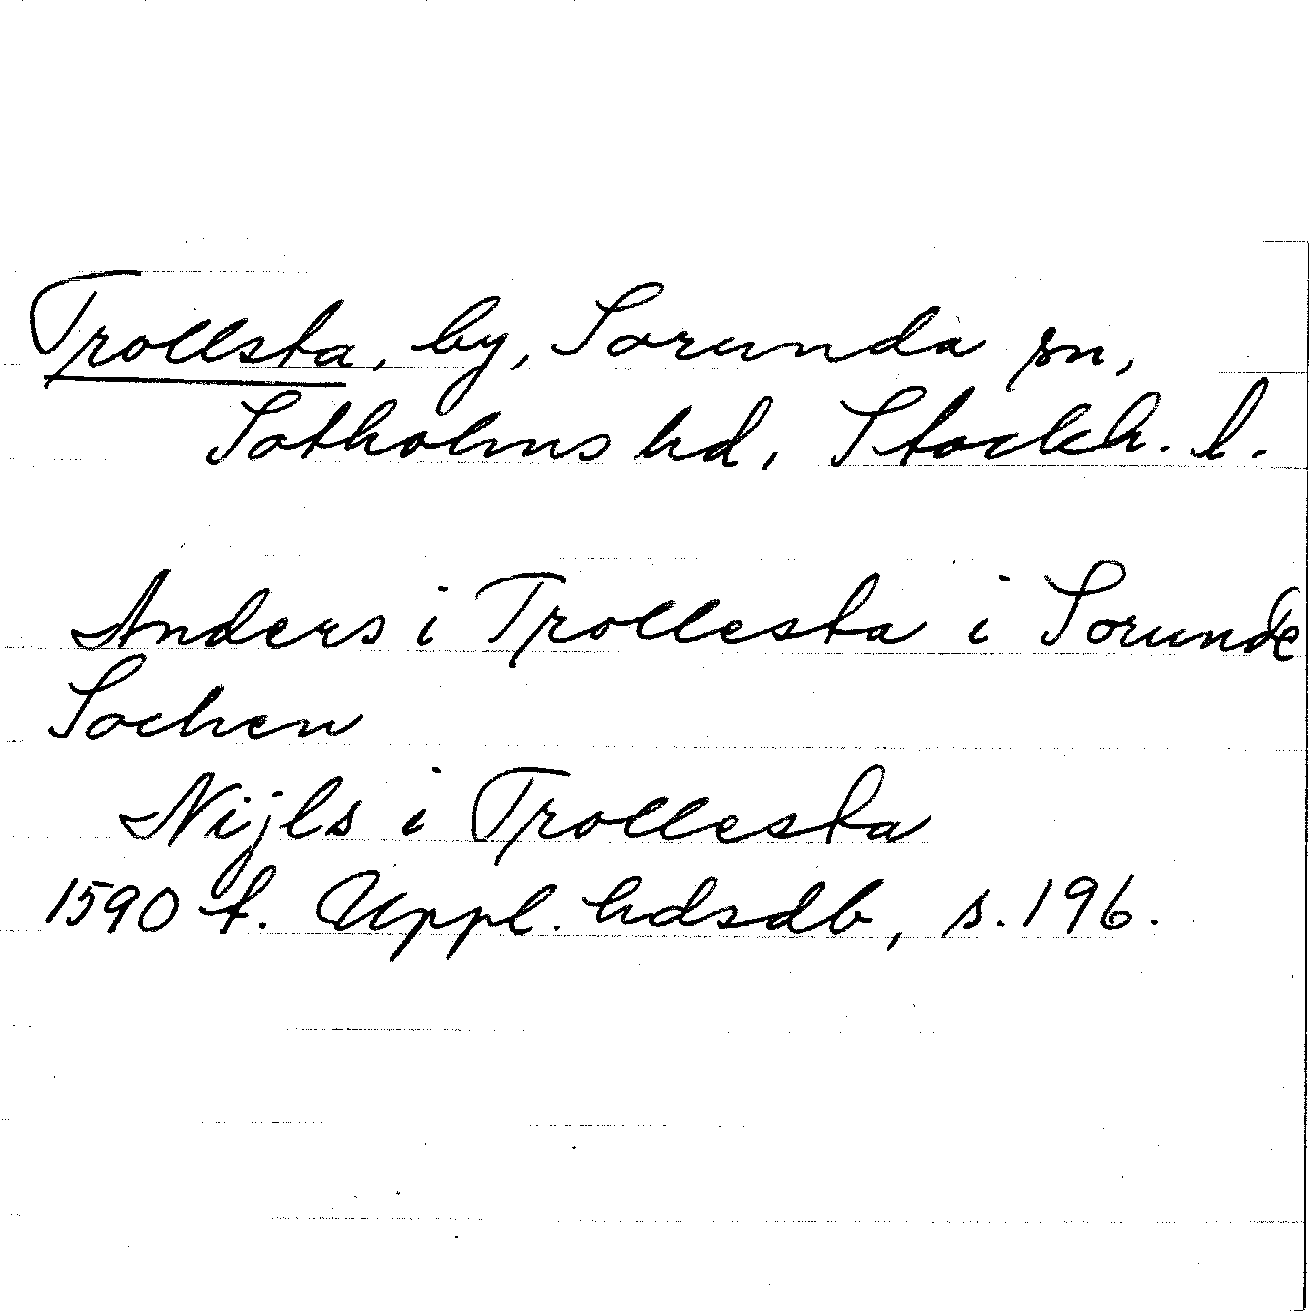 Trollsta, by, Sorunda sn,
Sotholms hd, Stockh. l.
Anders i Trollesta i Sorunde
Sochen
Nijls i Trollesta
1590 t. Uppl. hdsdb, s. 196.